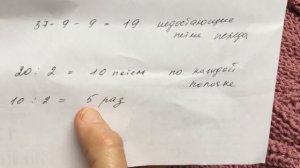 37 - 9 - 9 = 19 недостающие
петли переда
20 : 2 = 10 петель по каждой
полочке
10 : 2 = 5 раз